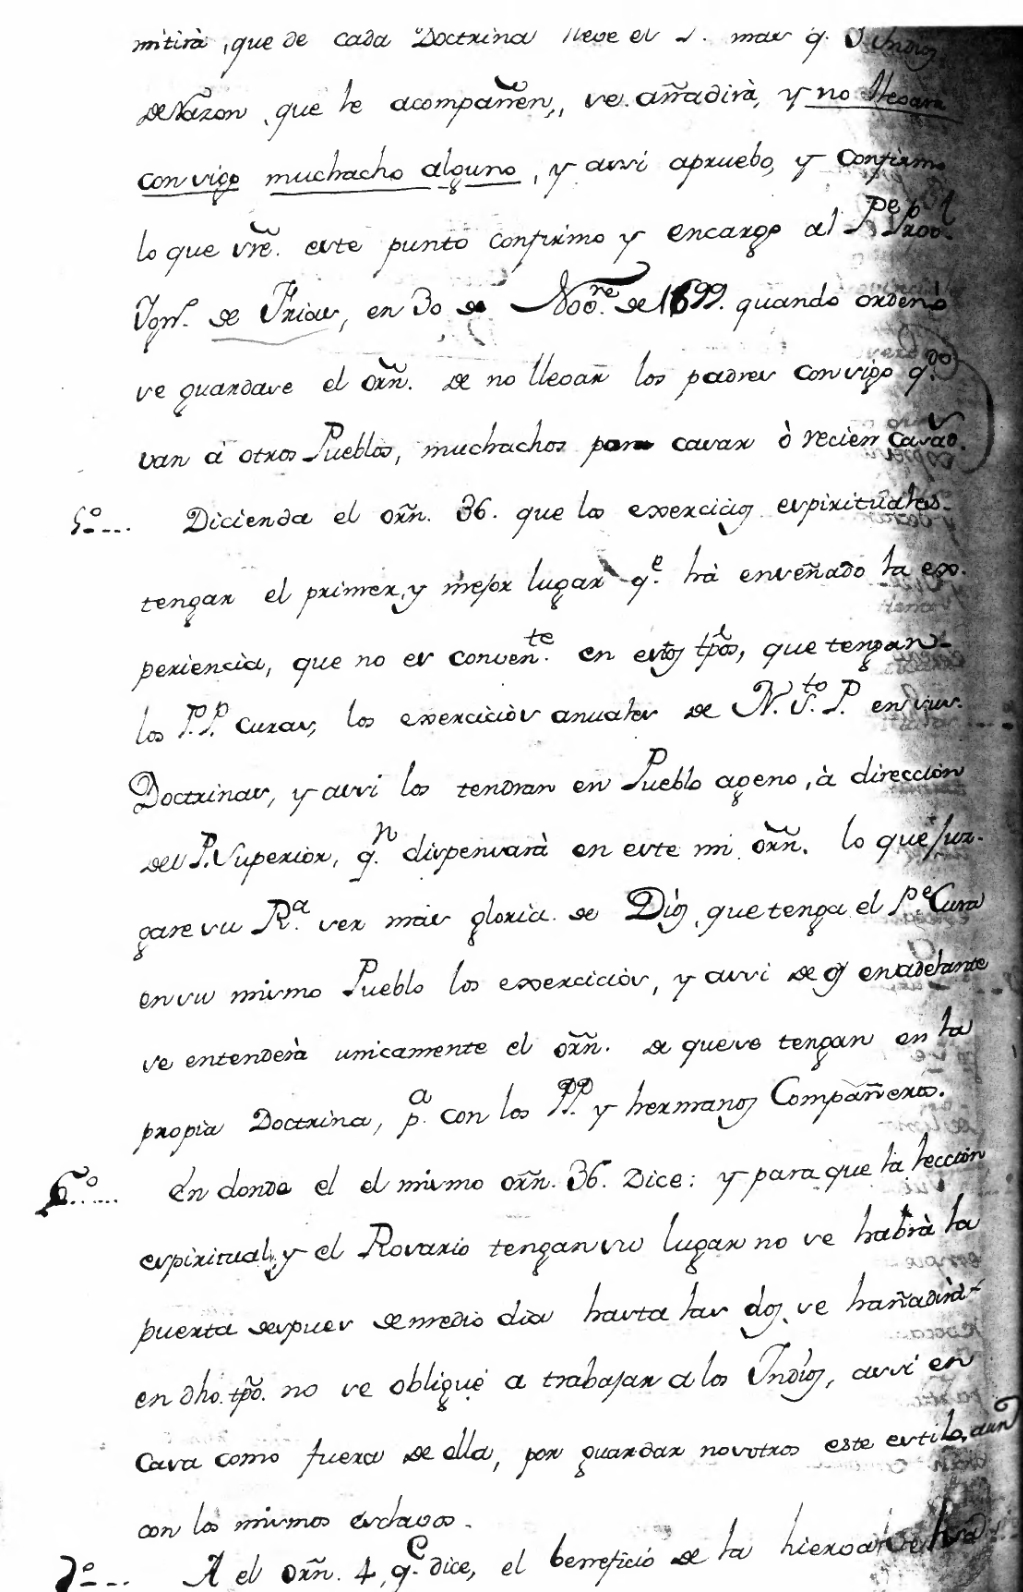 mitirà, que de cada Doctrina lleve el P. mas q. 3 Indios
de Razon, que le acompañen, se añadirà, y no llevara
consigo muchacho alguno, y assi apruebo, y confirmo
lo que sre. este punto confirmo y encargo al Pe. Prov.l
Ign. de Frias, en 30 de Novre. de 1699. quando ordenò
se guardase el orñ. de no llevar los padres consigo q.do
van à otros Pueblos, muchachos para casar ò recien casados.
5º.... Diciendo el orñ. 36. que los exercicios espirituales
tengan el primer, y mejor lugar q.e hà enseñado la ex-
periencia, que no es convente. en estos tpos, que tengan
los P.P. Curas, los exercicios anuales de N. S.to P. en sus
Doctrinas, y assi los tendran en Pueblo ageno, à direcciòn
del P. Superior, q.n dispensarà en este mi orñ. lo que juz-
gare su R.a ser màs gloria de Dios, que tenga el Pe. Cura
en su mismo Pueblo los exercicios, y assi de qe en adelante
se entenderà unicamente el orñ. de que se tengan en la
propia Doctrina, p.a con los PP. y hermanos Compañeros.
6º.... En donde el el mismo orñ. 36. Dice: y para que la lección
espiritual, y el Rosario tengan su lugar no se habrà la
puerta despues de medio dia hasta las dos, se hañadirà
en dho. tpo. no se obligue a trabajar a los Indios, assi en
Casa como fuera de ella, por guardar nosotros este estilo, aun
con los mismos esclavos.
7º.... A el orñ. 4, q.e dice, el beneficio de la hierba